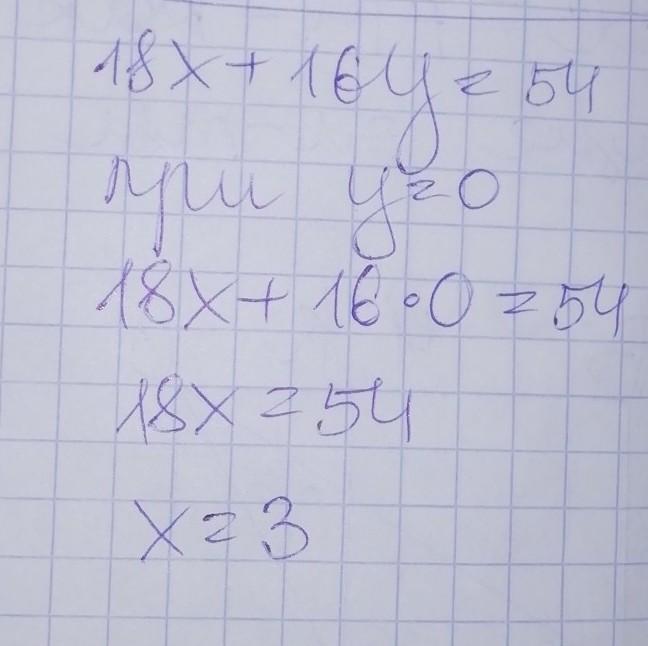 18x + 16y = 54
при y = 0
18x + 16 · 0 = 54
18x = 54
x = 3